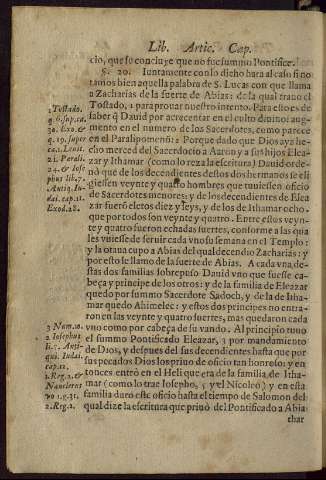 Lib. Artic. Cap.
cio, que se concluye que no fue summo Pontifice.
§. 20. Iuntamente con lo dicho hara al caso si no
tamos bien aquella palabra de S. Lucas con que llama
a Zacharias de la suerte de Abias: de la qual trato el
Tostado, 1 para provar nuestro intento. Para esto es de
saber q̃ Dauid por acrecentar en el culto diuino aug-
mento en el numero de los Sacerdotes, como parece
en el Paralipomenõ: 2 Porque dado que Dios aya he-
cho merced del Sacerdocio a Aaron y a sus hijos Elea-
zar y Ithamar (como lo reza la escritura) Dauid orde-
nò que de los decendientes destos dos hermanos se eli
giessen veynte y quatro hombres que tuuiesen oficio
de Sacerdotes menores: y de los decendientes de Elea
zar fuerõ eletos diez y seys, y de los de Ithamar ocho,
que por todos son veynte y quatro. Entre estos veyn-
te y quatro fueron echadas suertes, conforme a las qua
les vuiesse de seruir cada vno su semana en el Templo:
y la otaua cupo a Abias del qual decendio Zacharias: y
por esto le llamo de la suerte de Abias. A cada vna des-
tas dos familias sobrepuso Dauid vno que fuesse ca-
beça y principe de los otros: y de la familia de Eleazar
quedo por summo Sacerdote Sadoch, y de la de Itha-
mar quedo Ahimelec: y estos dos principes no entra-
ron en las veynte y quatro suertes, mas quedaron cada
vno como por cabeça de su vando. Al principio tuuo
el summo Pontificado Eleazar, 3 por mandamiento
de Dios, y despues del sus decendientes hasta que por
sus pecados Dios los priuo de oficio tan honroso: y en
tonces entrò en el Heli que era de la familia de Itha-
mar (como lo trae Iosepho, 5 y el Niceleo) y en esta
familia duro este oficio hasta el tiempo de Salomon del
qual dize la escritura que priuò del Pontificado a Abia
thar
1 Tostado.
q. 6. sup. ca.
30. Exo. &
q. 19. super
c. 21. Leuit.
2 1. Parali.
24. & Iose
phus lib. 7.
Antiq. Iu-
dai. cap. 11.
Exod. 28.
3 Num. 20.
2 Iosephus
li. 5. Anti-
qui. Iudai.
cap. 12.
1. Reg. 2. &
Nauclerus
vo 1. g. 31.
2. Reg. 2.